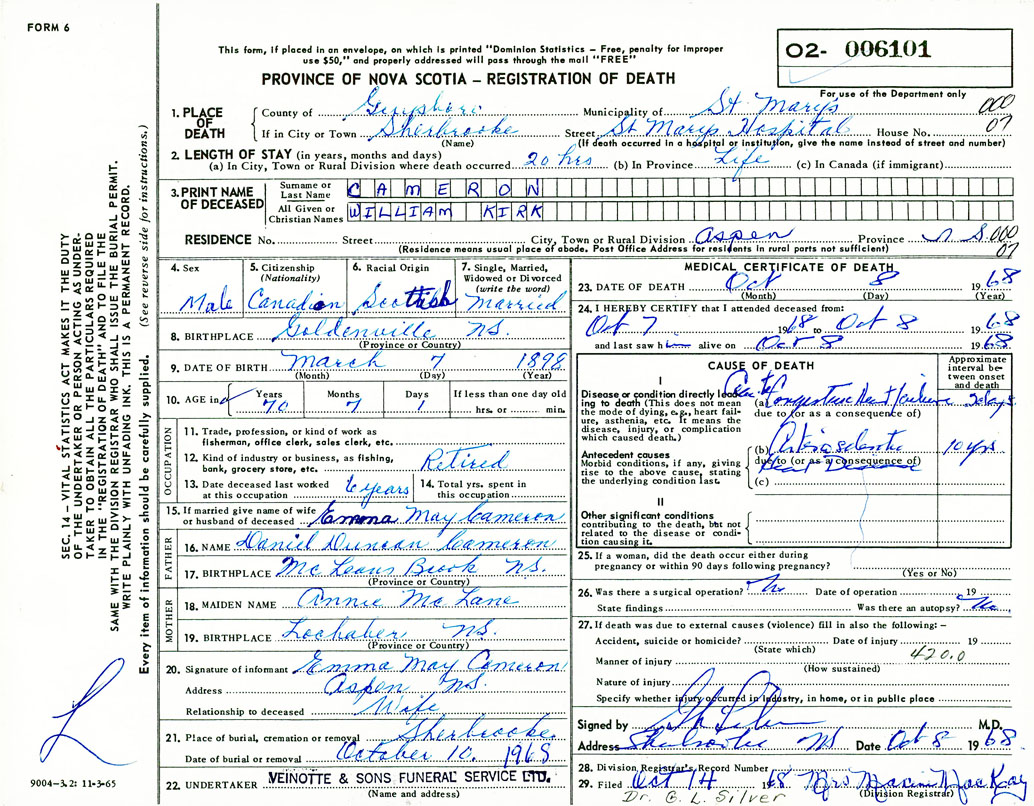 FORM 6
This form, if placed in an envelope, on which is printed "Dominion Statistics – Free, penalty for improper
use $50," and properly addressed will pass through the mail "FREE"
PROVINCE OF NOVA SCOTIA – REGISTRATION OF DEATH
02- 006101
For use of the Department only
000
07
1. PLACE OF DEATH
County of Guysboro Municipality of St Marys
If in City or Town Sherbrooke Street St Marys Hospital House No.
(Name) (If death occurred in a hospital or institution, give the name instead of street and number)
2. LENGTH OF STAY (in years, months and days)
(a) In City, Town or Rural Division where death occurred 20 hrs (b) In Province Life (c) In Canada (if immigrant)
3. PRINT NAME OF DECEASED
Surname or Last Name CAMERON
All Given or Christian Names WILLIAM KIRK
RESIDENCE No. Street City, Town or Rural Division Aspen Province N S 000
07
(Residence means usual place of abode. Post Office Address for residents in rural parts not sufficient)
4. Sex Male
5. Citizenship (Nationality) Canadian
6. Racial Origin Scottish
7. Single, Married, Widowed or Divorced (write the word) Married
8. BIRTHPLACE Goldenville NS.
(Province or Country)
9. DATE OF BIRTH March 7 1898
(Month) (Day) (Year)
10. AGE in Years 70 Months 7 Days 1 If less than one day old hrs. or min.
OCCUPATION
11. Trade, profession, or kind of work as
fisherman, office clerk, sales clerk, etc.
12. Kind of industry or business, as fishing,
bank, grocery store, etc. Retired
13. Date deceased last worked
at this occupation 6 years
14. Total yrs. spent in
this occupation
15. If married give name of wife
or husband of deceased Emma May Cameron
FATHER
16. NAME Daniel Duncan Cameron
17. BIRTHPLACE McLeans Brook NS.
(Province or Country)
MOTHER
18. MAIDEN NAME Annie Mc Lane
19. BIRTHPLACE Lochaber NS.
(Province or Country)
20. Signature of informant Emma May Cameron
Address Aspen NS.
Relationship to deceased Wife
21. Place of burial, cremation or removal Sherbrooke
Date of burial or removal October 10. 1968
22. UNDERTAKER VEINOTTE & SONS FUNERAL SERVICE LTD.
(Name and address)
MEDICAL CERTIFICATE OF DEATH
23. DATE OF DEATH Oct 8 1968
(Month) (Day) (Year)
24. I HEREBY CERTIFY that I attended deceased from:
Oct 7 1968 to Oct 8 1968
and last saw him alive on Oct 8 1968
CAUSE OF DEATH
Approximate interval between onset and death
I
Disease or condition directly leading to death (This does not mean
the mode of dying, e.g., heart failure, asthenia, etc. It means the
disease, injury, or complication
which caused death.)
(a) Acute Congestive Heart Failure 2 days
due to (or as a consequence of)
Antecedent causes
Morbid conditions, if any, giving
rise to the above cause, stating
the underlying condition last.
(b) Arteriosclerotic 10 yrs.
due to (or as a consequence of)
Heart Disease
(c)
II
Other significant conditions
contributing to the death, but not
related to the disease or condition causing it.
25. If a woman, did the death occur either during
pregnancy or within 90 days following pregnancy?
(Yes or No)
26. Was there a surgical operation? No Date of operation 19
State findings Was there an autopsy? No
27. If death was due to external causes (violence) fill in also the following: –
Accident, suicide or homicide? Date of injury 19
(State which) 420.0
Manner of injury
(How sustained)
Nature of injury
Specify whether injury occurred in industry, in home, or in public place
Signed by M.D.
Address Sherbrooke NS Date Oct 8 1968.
28. Division Registrar's Record Number
29. Filed Oct 14 1968 Mrs Maxine MacKay
(Division Registrar)
Dr. G. L. Silver
SEC. 14 – VITAL STATISTICS ACT MAKES IT THE DUTY
OF THE UNDERTAKER OR PERSON ACTING AS UNDER-
TAKER TO OBTAIN ALL THE PARTICULARS REQUIRED
IN THE "REGISTRATION OF DEATH" AND TO FILE THE
SAME WITH THE DIVISION REGISTRAR WHO SHALL ISSUE THE BURIAL PERMIT.
WRITE PLAINLY WITH UNFADING INK. THIS IS A PERMANENT RECORD.
Every item of information should be carefully supplied. (See reverse side for instructions.)
9004–3.2: 11-3-65